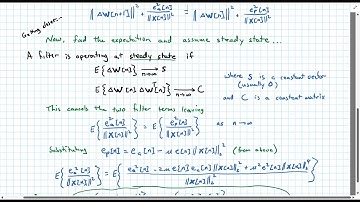 Getting closer...
‖ΔW[n+1]‖² + e_a²[n] / ‖X[n]‖² = ‖ΔW[n]‖² + e_p²[n] / ‖X[n]‖²
Now, find the expectation and assume steady state...
A filter is operating at steady state if
E{ΔW[n]} → S
n→∞
where S is a constant vector
(usually 0)
E{ΔW[n] ΔWᵀ[n]} → C
n→∞
and C is a constant matrix
This cancels the two filter terms leaving
E{e_a²[n] / ‖X[n]‖²} = E{e_p²[n] / ‖X[n]‖²} as n→∞
Substituting e_p[n] = e_a[n] - μ e[n] ‖X[n]‖² (from above)
E{e_a²[n] / ‖X[n]‖²} = E{e_a²[n] - 2μ e[n] e_a[n] ‖X[n]‖² + μ² e²[n] ‖X[n]‖⁴ / ‖X[n]‖²}